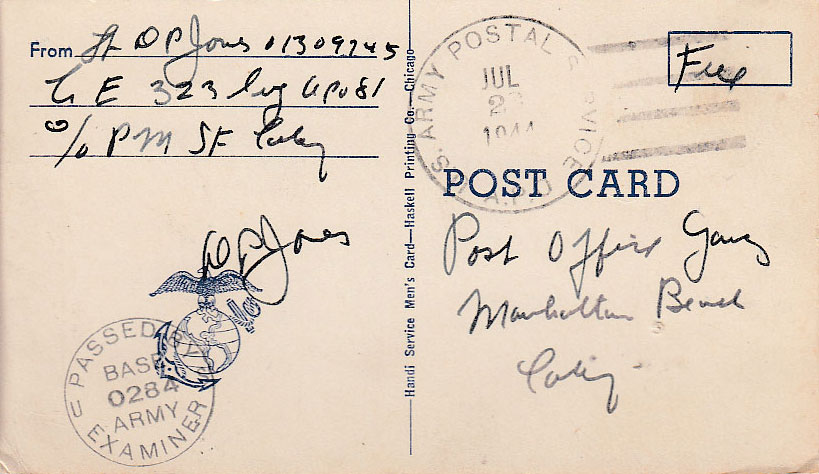 From Lt D P Jones 01309745
Co E 323 Inf APO 81
c/o PM SF Calif
D P Jones
PASSED BY
BASE
0284
ARMY
EXAMINER
Handi Service Men's Card—Haskell Printing Co.—Chicago
U.S. ARMY POSTAL SERVICE
JUL
1944
A.P.O
Free
POST CARD
Post Office Gang
Manhattan Beach
Calif